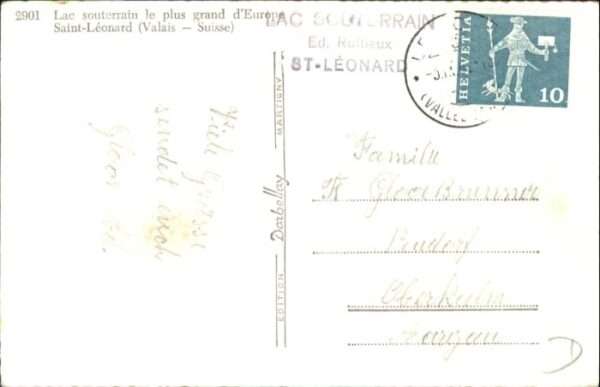 2901 Lac souterrain le plus grand d'Europe
Saint-Léonard (Valais – Suisse)
LAC SOUTERRAIN
Ed. Ruffieux
ST-LÉONARD
HELVETIA
10
(VALLEE
Viele Grüsse
sendet euch
Gloor
EDITION Darbellay MARTIGNY
Familie
Gloor Brunner
Oberkulm
Aargau